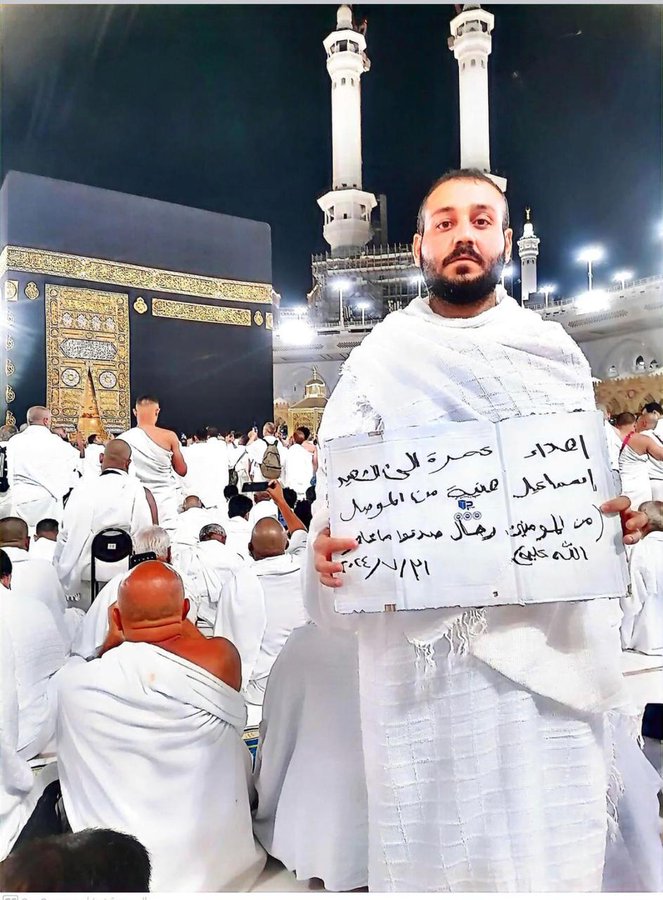 اهداء عمرة الى الشهيد
إسماعيل هنية من الموصل
(من المؤمنين رجال صدقوا ما عاهدوا
الله عليه) ٢٠٢٤/٧/٣١